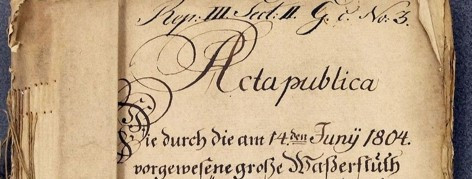 Rep: III. Sect: II. G. c. No: 3.
Acta publica
Die durch die am 14.den Junÿ 1804.
vorgewesene große Waßerfluth